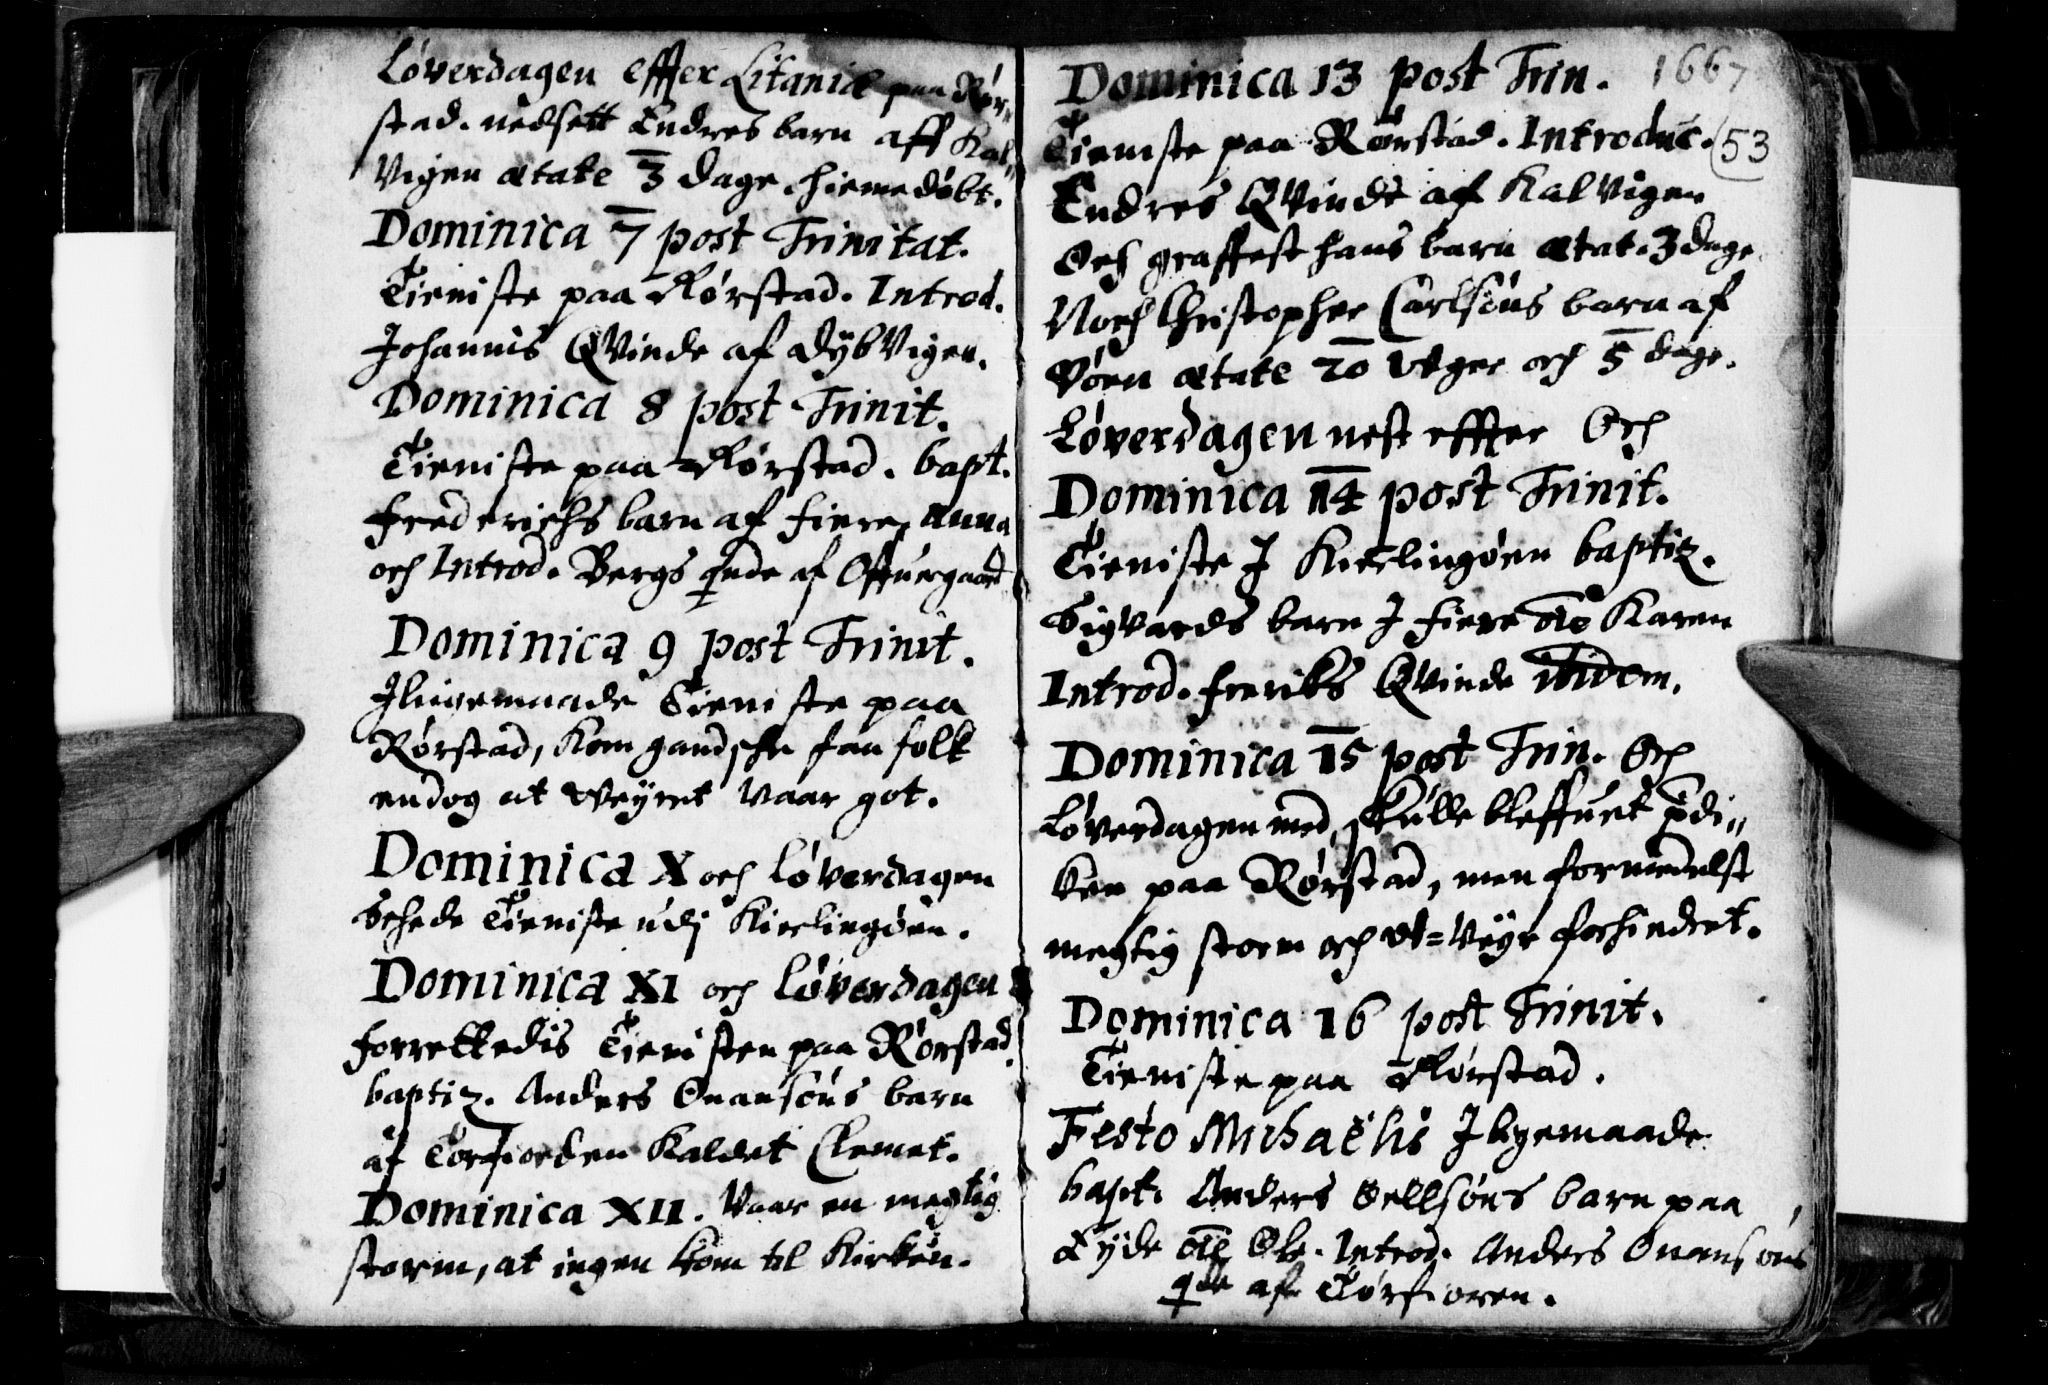 Løverdagen effter Litaniæ paa Rør„
stad. nedsett Endres barn aff Kal„
Vigen ætate 3 dage, hiemedøbt.
Dominica 7 post Trinitat.
Tieniste paa Rørstad. Introd.
Johannis QVinde af DybVigen.
Dominica 8 post Trinit.
Tieniste paa Rørstad. bapt.
frederichs barn af fiere, Anna
och Introd. Bergs qnde af Offuergaard
Dominica 9 post Trinit.
Jligemaade Tieniste paa
Rørstad, Kom gandsche faa folk
endog at Weyret Vaar got.
Dominica X och Løverdagen
Schede Tieniste udj Kierlingøen.
Dominica XI och Løverdagen
forrettedis Tienisten paa Rørstad
baptiz. Anders Onansøns barn
af Torfiorden Kaldet Clemet.
Dominica XII. Vaar en megtig
storm, at ingen kom til Kirken.
Dominica 13 post Trin. 1667
Tieniste paa Rørstad. Introduc. 53
Endres QVinde af KalVigen
Och graffest hans barn ætat. 3 dage
Noch Christopher Carlsøns barn af
Vøen ætate 20 Uger och 5 dage.
Løverdagen nest effter Och
Dominica 14 post Trinit.
Tieniste J Kierlingøen baptiz.
Sigvards barn J fiere ōie Karen
Introd. freriks QVinde ibidem.
Dominica 15 post Trin. Och
Løverdagen med, skulle bleffuet p̄di„
ken paa Rørstad, men formedelst
megtig storm och Ut=Veyr forhindret.
Dominica 16 post Trinit.
Tieniste paa Rørstad.
Festo Michaëlis Jligemaade
bapt. Anders Oellsøns barn paa
Tyde ōie Ole. Introd. Anders Onansøns
qde af Tørfioren.